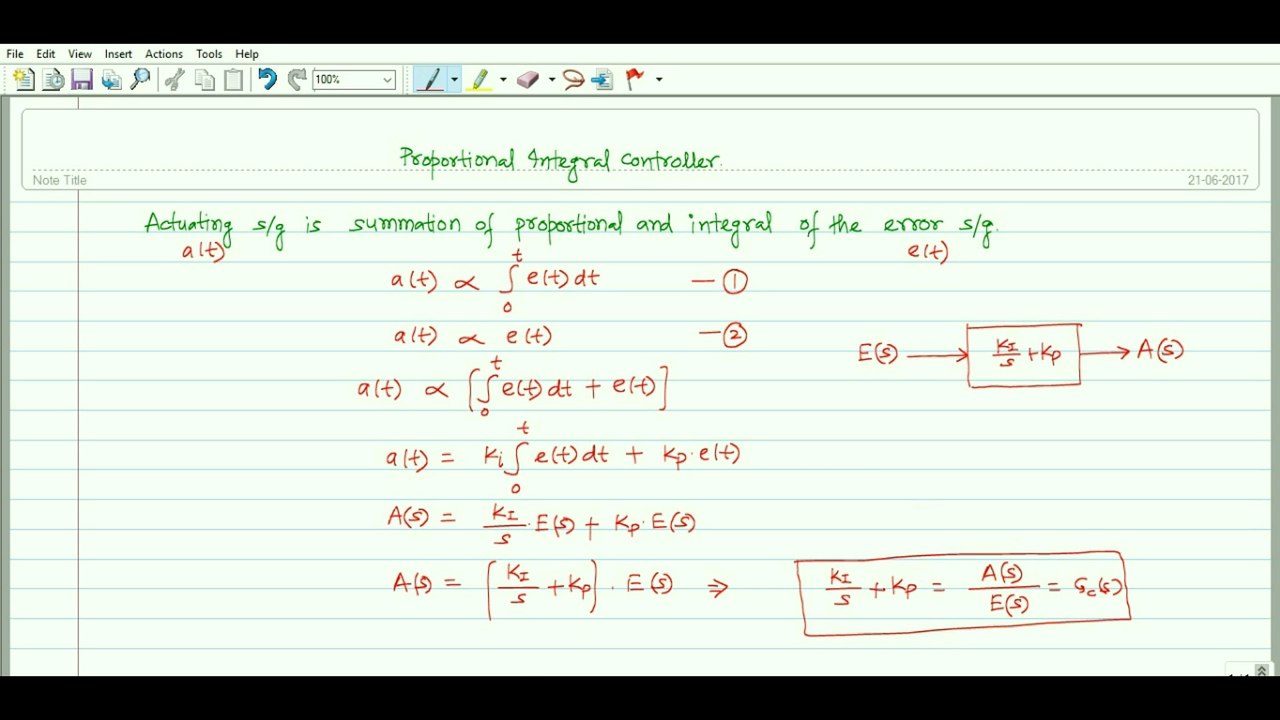 File Edit View Insert Actions Tools Help
100%
Proportional Integral Controller.
Note Title
21-06-2017
Actuating s/g is summation of proportional and integral of the error s/g.
a(t) e(t)
a(t) ∝ ∫₀ᵗ e(t) dt — ①
a(t) ∝ e(t) — ②
E(s) → K_I/s + K_P → A(s)
a(t) ∝ [∫₀ᵗ e(t) dt + e(t)]
a(t) = K_i ∫₀ᵗ e(t) dt + K_P · e(t)
A(s) = K_I/s · E(s) + K_P · E(s)
A(s) = [K_I/s + K_P] · E(s) ⇒ K_I/s + K_P = A(s)/E(s) = G_c(s)